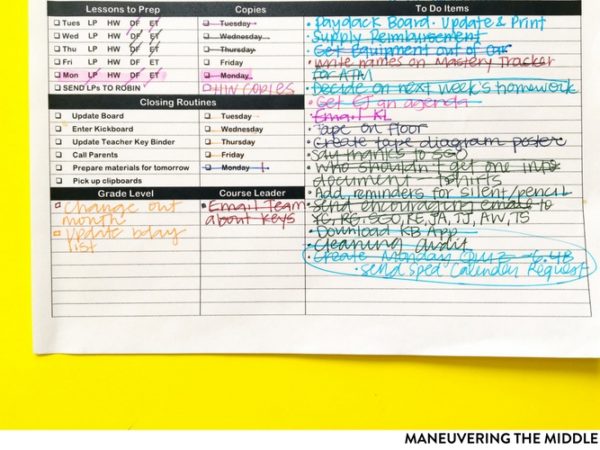 Lessons to Prep
Tues LP HW DF ET
Wed LP HW DF ET
Thu LP HW DF ET
Fri LP HW DF ET
Mon LP HW DF ET
SEND LPs TO ROBIN
Copies
Tuesday
Wednesday
Thursday
Friday
Monday
HW COPIES
Closing Routines
Update Board
Enter Kickboard
Update Teacher Key Binder
Call Parents
Prepare materials for tomorrow
Pick up clipboards
Tuesday
Wednesday
Thursday
Friday
Monday
Grade Level
change out
month
update bday
list
Course Leader
Email Team
about keys
To Do Items
Paycheck Board - Update & Print
Supply Reimbursement
Get Equipment out of car
Write names on Mastery Tracker
for ATM
Decide on next week's homework
Get EJ an agenda
Email KL
Tape on floor
Create tape diagram poster
Say thanks to SGO
Who shouldn't get one into
document - tshirts
Add reminders for silent/pencil
Send encouraging emails to
YG, RS, SGO, KE, JA, TJ, AW, TS
Download KB App
Cleaning audit
Create Monday Quiz - 6.4B
send sped Calendar Request
MANEUVERING THE MIDDLE